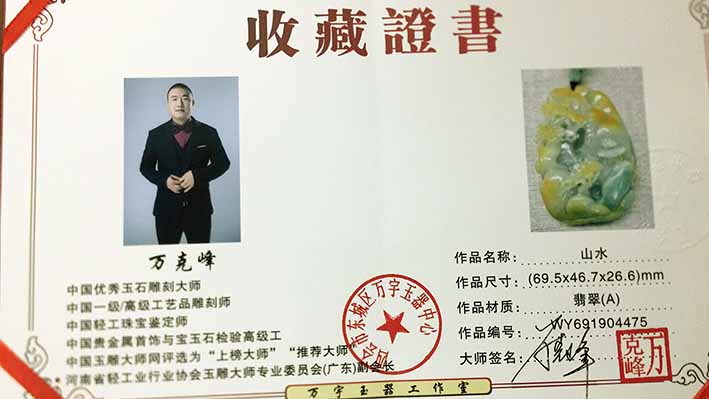 收藏證書
万克峰
中国优秀玉石雕刻大师
中国一级/高级工艺品雕刻师
中国轻工珠宝鉴定师
中国贵金属首饰与宝玉石检验高级工
中国玉雕大师网评选为“上榜大师”“推荐大师”
河南省轻工业行业协会玉雕大师专业委员会(广东)副会长
作品名称: 山水
作品尺寸: (69.5x46.7x26.6)mm
作品材质: 翡翠(A)
作品编号: WY691904475
大师签名:
万克峰
四会市东城区万宇玉器中心
万宇玉器工作室